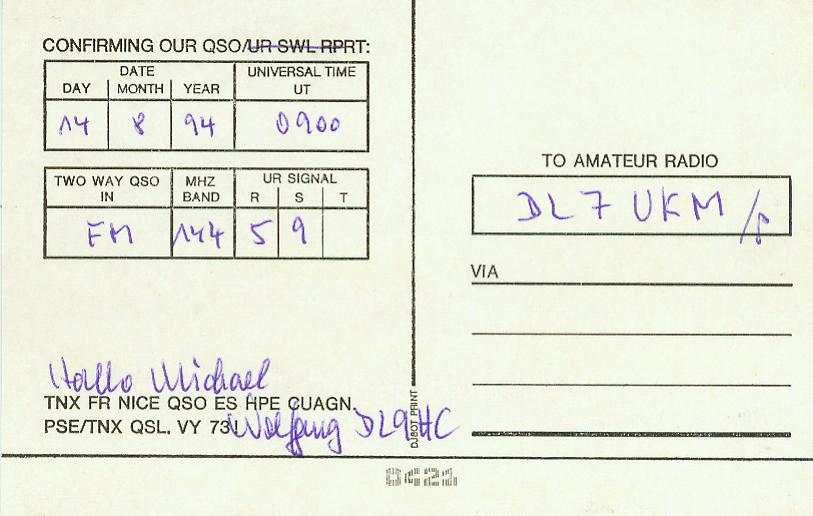 CONFIRMING OUR QSO/UR SWL RPRT:
DATE
UNIVERSAL TIME
DAY MONTH YEAR UT
14 8 94 0900
TWO WAY QSO IN
MHZ BAND
UR SIGNAL
R S T
FM 144 5 9
Hallo Michael
TNX FR NICE QSO ES HPE CUAGN.
PSE/TNX QSL. VY 73! Wolfgang DL9HC
DJ8OT PRINT
TO AMATEUR RADIO
DL7UKM/p
VIA
0421